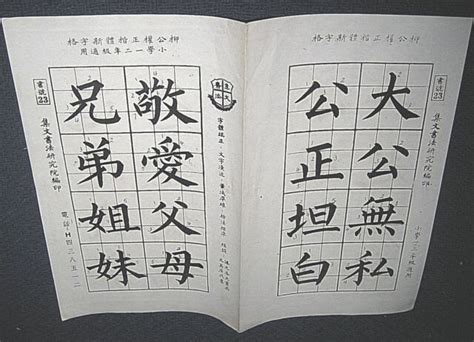 柳公權正楷體新字格
書號23
集文書法研究院編印
大公無私
公正坦白
柳公權正楷體新字格
小學一二年級適用
敬愛父母
兄弟姐妹
書號23
集文書法研究院編印
電話：H四三八五一二